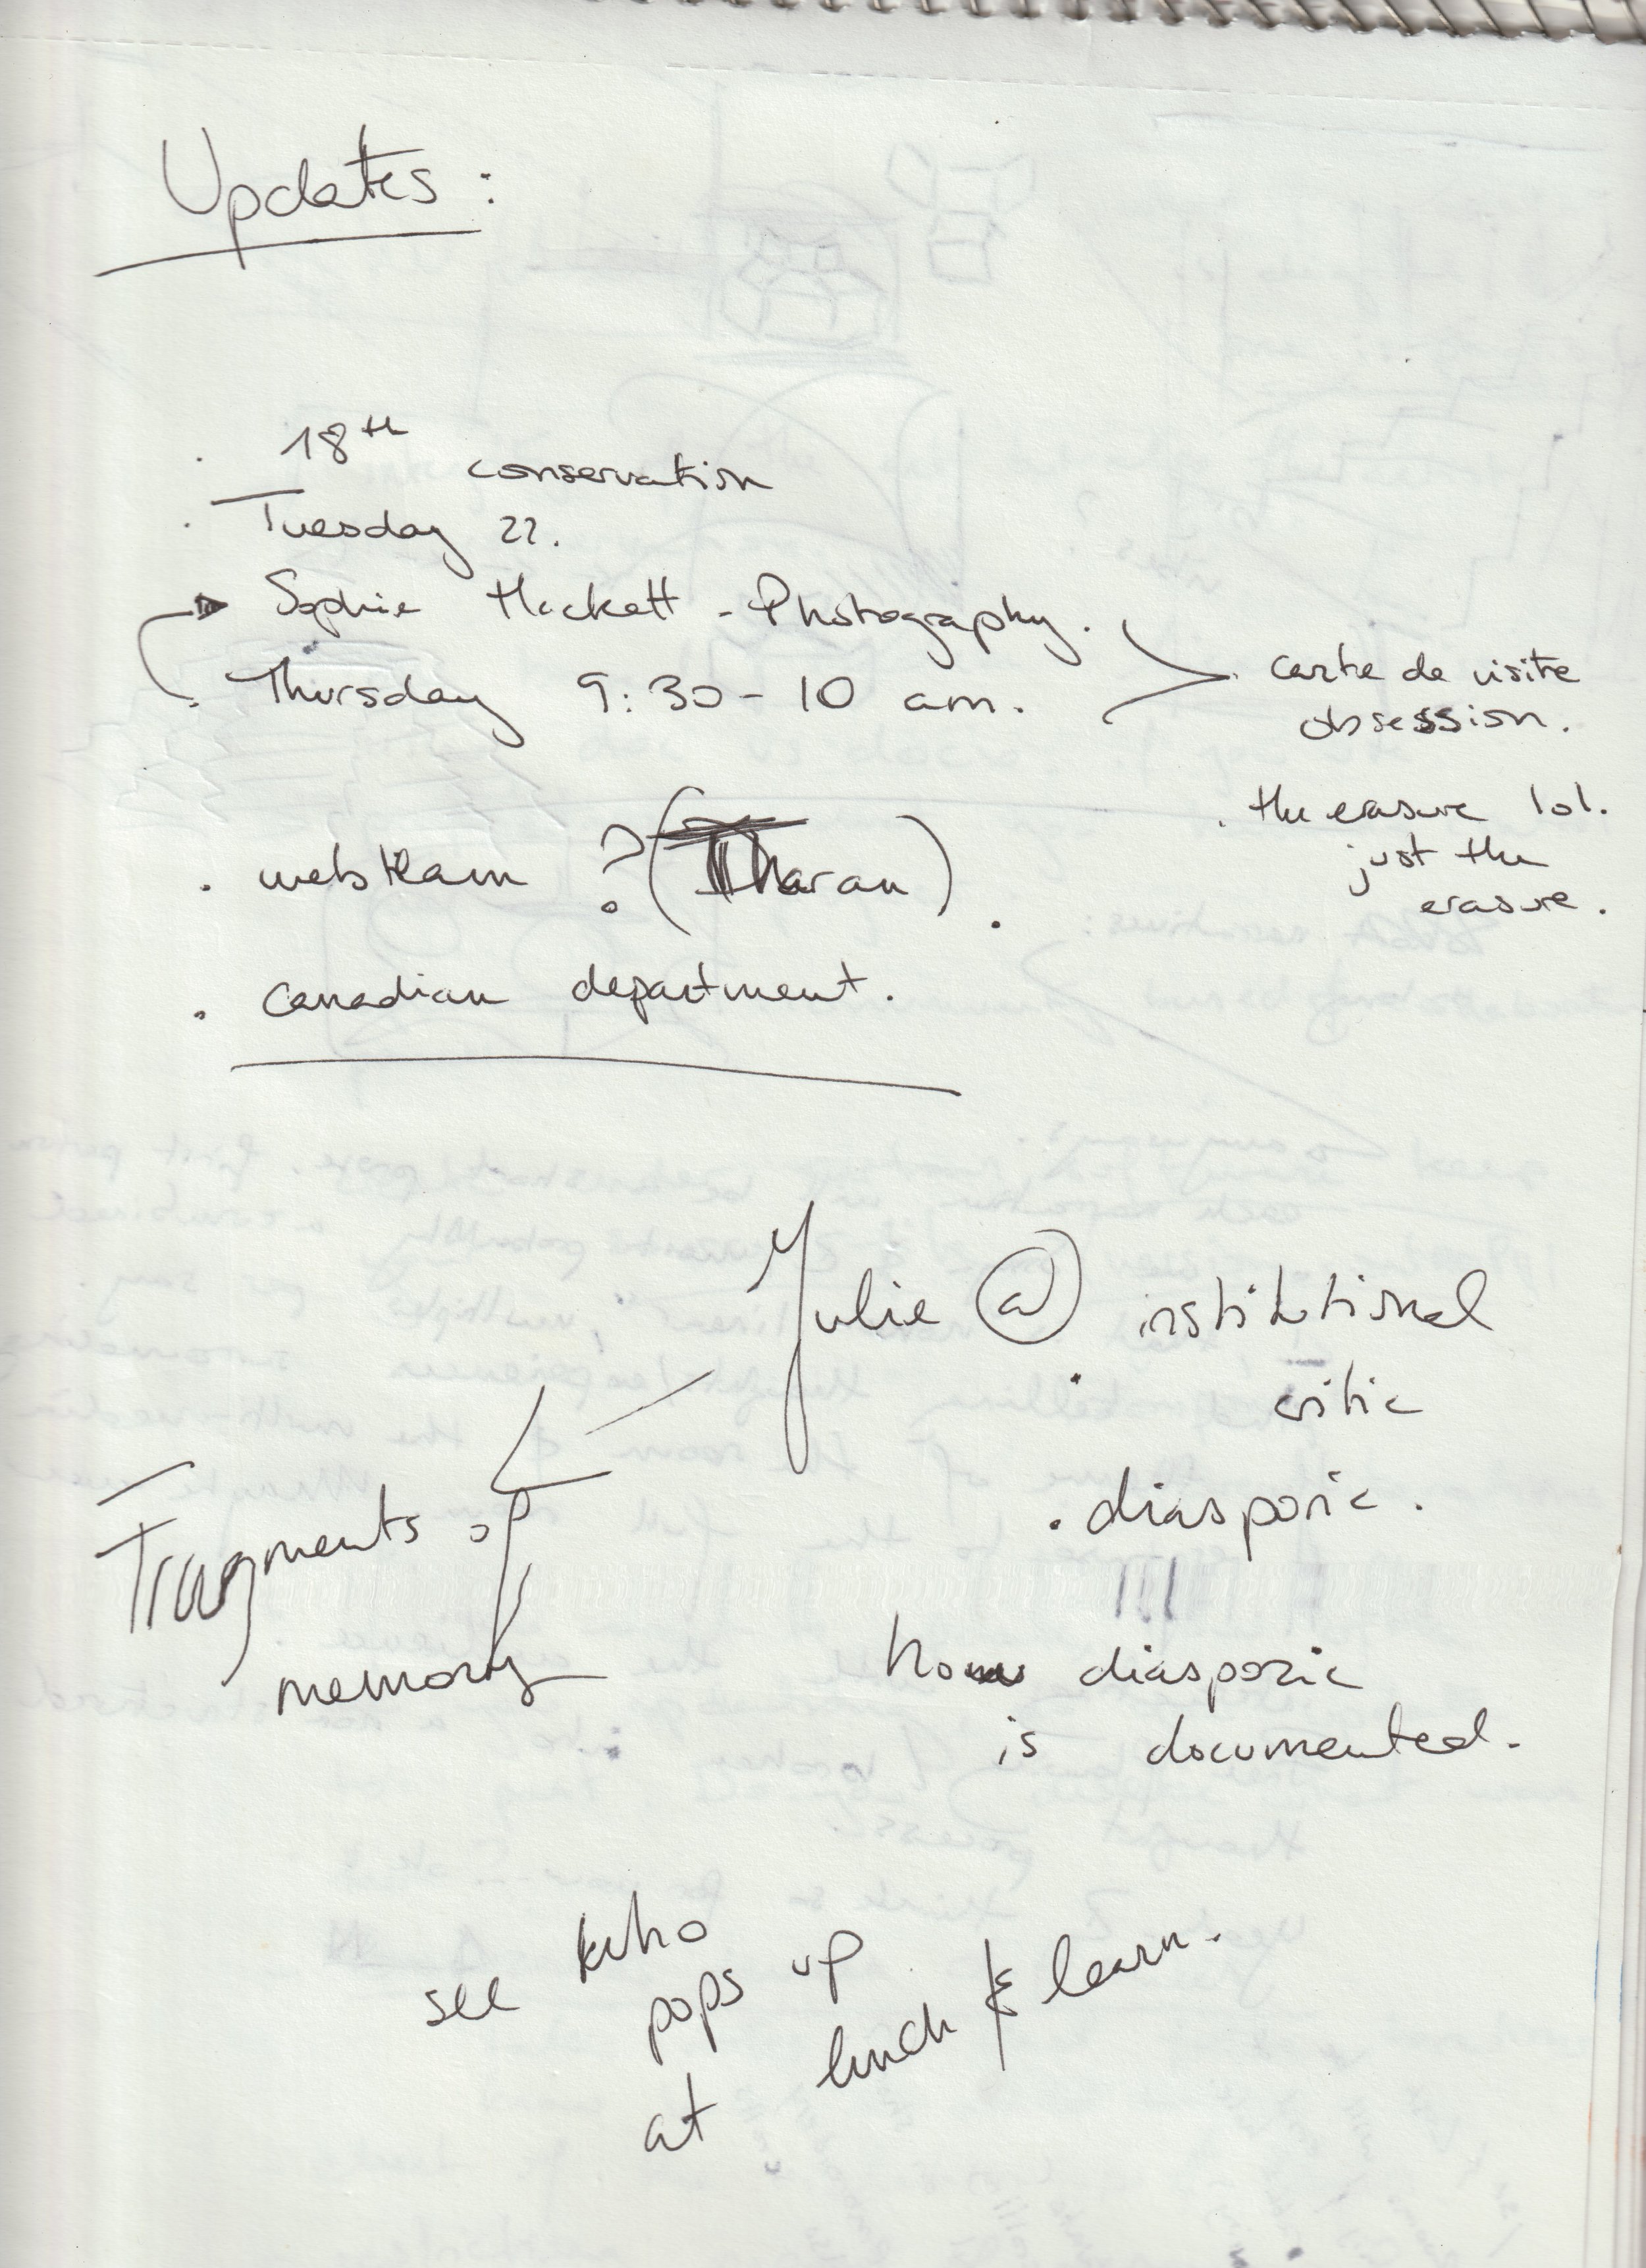 Updates :
. 18th conservation
. Tuesday 22.
Sophie Hackett - Photography.
. Thursday 9:30 - 10 am.
. carte de visite
obsession.
. the erasure lol.
just the
erasure.
. webteam ? (Tharan) .
. canadian department.
Julie @ institutional
. critic
. diasporic.
Fragments of
memory
how diasporic
is documented.
see who
pops up
at lunch & learn.